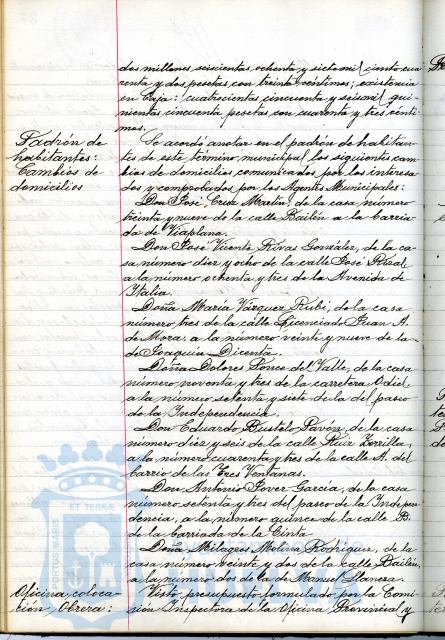 dos millones, seiscientas, ochenta y siete mil ciento cua
renta y dos pesetas con treinta céntimos; existencia
en Caja: cuatrocientas cincuenta y seis mil qui
nientas cincuenta pesetas con cuarenta y tres cénti
mos.
Padrón de
habitantes:
Cambios de
domicilios
Se acordó anotar en el padrón de habitan-
tes de este término municipal los siguientes cam
bios de domicilios comunicados por los interesa
dos y comprobados por los Agentes Municipales:
Don José Cruz Martín, de la casa número
treinta y nueve de la calle Bailén a la barria
da de Viaplana.
Don José Vicente Rivas González, de la ca-
sa número diez y ocho de la calle José Rizal
a la número ochenta y tres de la Avenida de
Italia.
Doña María Vázquez Rubí, de la casa
número tres de la calle Licenciado Juan A.
de Mora, a la número veinte y nueve de la
de Joaquín Dicenta.
Doña Dolores Ponce del Valle, de la casa
número noventa y tres de la carretera Odiel
a la número setenta y siete de la del paseo
de la Independencia.
Don Eduardo Bustelo Pavón, de la casa
número diez y seis de la calle Ruiz Zorrilla,
a la número cuarenta y tres de la calle A. del
barrio de las Tres Ventanas.
Don Antonio Jover García, de la casa
número setenta y tres del paseo de la Indepen
dencia, a la número quince de la calle B.
de la barriada de la Cinta.
Doña Milagros Molina Rodríguez, de la
casa número veinte y dos de la calle Bailén,
a la número dos de la de Manuel Llanera.
Oficina coloca-
ción Obrera:
Visto presupuesto formulado por la Comi-
sión Inspectora de la Oficina Provincial y
PORTUS MARIS
ET TERRÆ